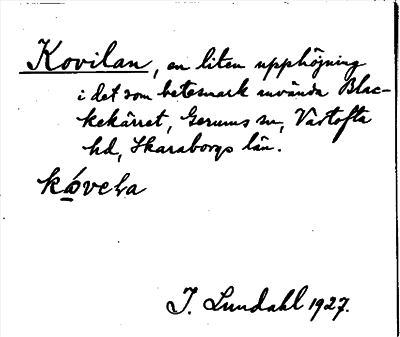 Kovilan, en liten upphöjning
i det som betesmark använda Blac-
kekärret, Gerums sn, Vartofta
hd, Skaraborgs län.
kǿvela
J. Lundahl 1927.